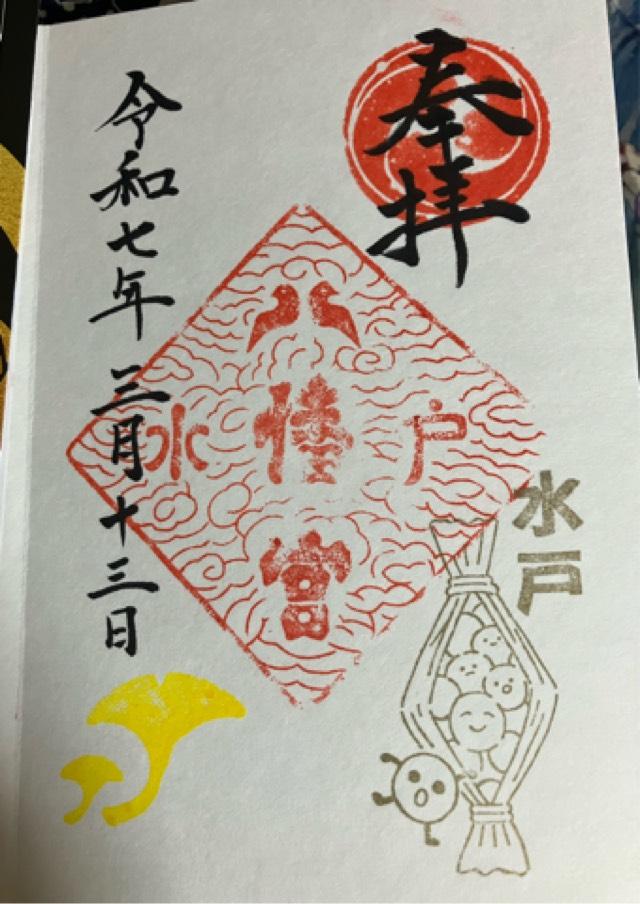 奉拝
水戸
八幡宮
水戸
令和七年三月十三日